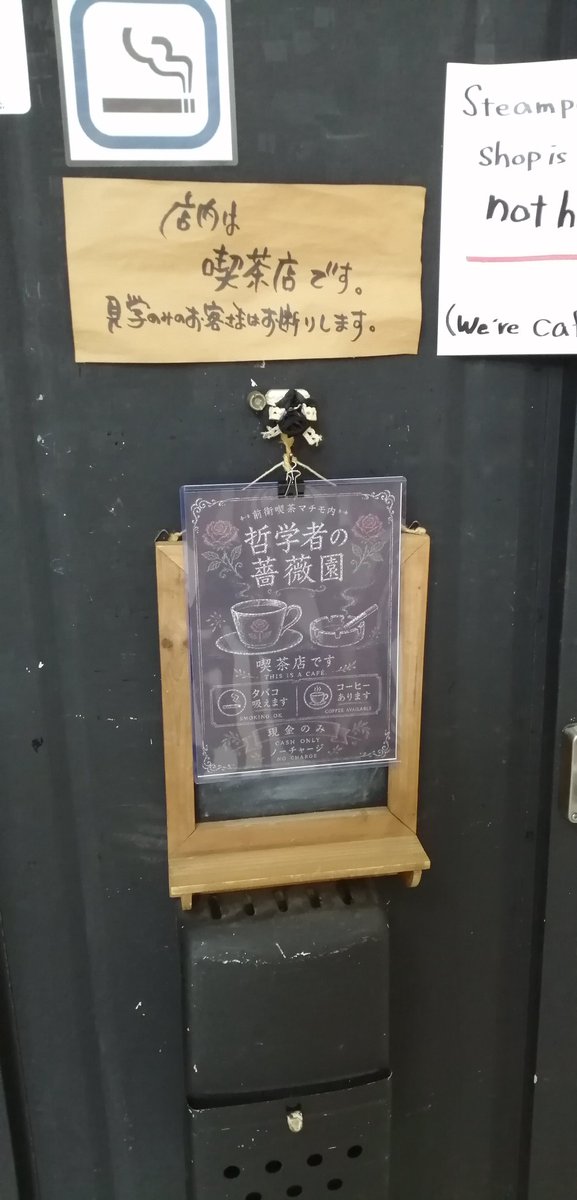 店内は
喫茶店です。
見学のみのお客さまはお断りします。
Steamp
shop is
not h
(We're caf
前衛喫茶マチモ内
哲学者の
薔薇園
喫茶店です
THIS IS A CAFÉ
タバコ
吸えます
SMOKING OK
コーヒー
あります
COFFEE AVAILABLE
現金のみ
CASH ONLY
ノーチャージ
NO CHARGE